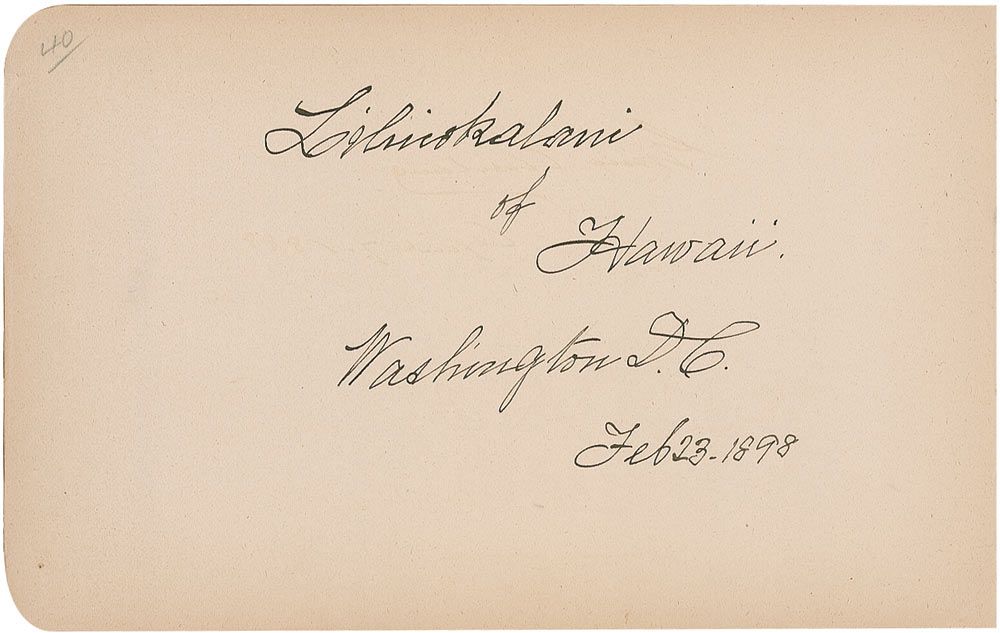 40
Liliuokalani
of
Hawaii.
Washington D.C.
Feb 23-1898